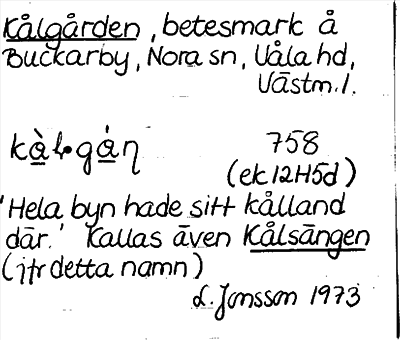 Kålgården, betesmark å
Buckarby, Nora sn, Våla hd,
Västm. l.
kàl·gáṇ 758
(ek 12H5d)
'Hela byn hade sitt kålland
där.' Kallas även Kålsängen
(jfr detta namn)
L. Jonsson 1973